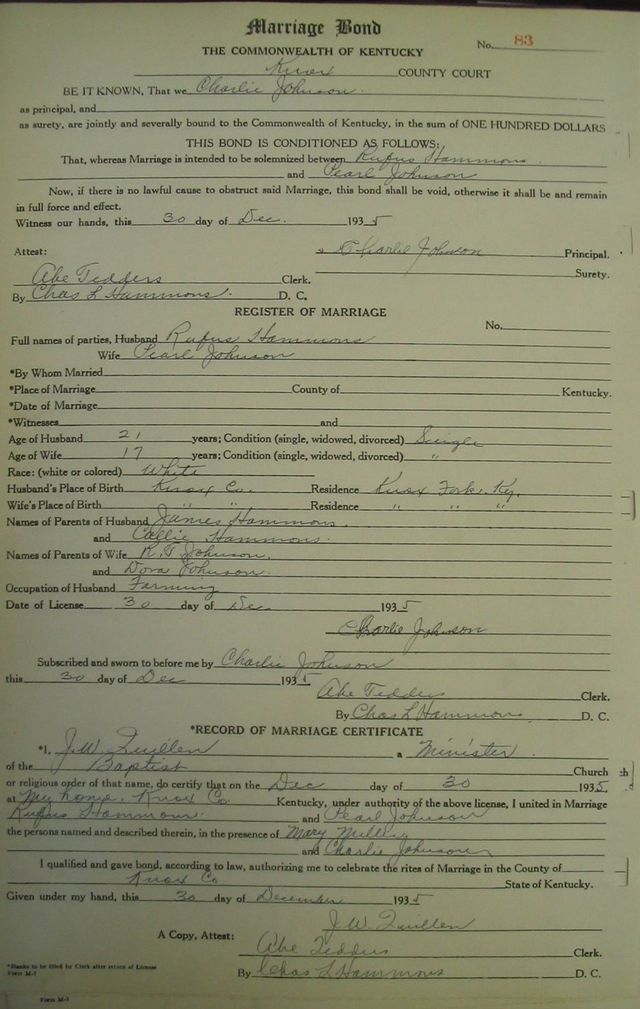 Marriage Bond
No. 83
THE COMMONWEALTH OF KENTUCKY
Knox COUNTY COURT
BE IT KNOWN, That we Charlie Johnson.
as principal, and
as surety, are jointly and severally bound to the Commonwealth of Kentucky, in the sum of ONE HUNDRED DOLLARS
THIS BOND IS CONDITIONED AS FOLLOWS:
That, whereas Marriage is intended to be solemnized between Rufus Hammons.
and Pearl Johnson
Now, if there is no lawful cause to obstruct said Marriage, this bond shall be void, otherwise it shall be and remain
in full force and effect.
Witness our hands, this 30 day of Dec. 1935
Attest: Charlie Johnson Principal.
Surety.
Abe Tedders Clerk.
By Chas L Hammons. D. C.
REGISTER OF MARRIAGE
No.
Full names of parties, Husband Rufus Hammons
Wife Pearl Johnson
*By Whom Married
*Place of Marriage County of Kentucky.
*Date of Marriage
*Witnesses and
Age of Husband 21 years; Condition (single, widowed, divorced) Single
Age of Wife 17 years; Condition (single, widowed, divorced) "
Race: (white or colored) White
Husband's Place of Birth Knox Co. Residence Knox Fork. Ky.
Wife's Place of Birth " " Residence " " "
Names of Parents of Husband James Hammons.
and Callie Hammons.
Names of Parents of Wife Johnson.
and Dora Johnson.
Occupation of Husband Farming
Date of License 30 day of Dec 1935
Charlie Johnson
Subscribed and sworn to before me by Charlie Johnson
this 30 day of Dec 1935
Abe Tedders Clerk.
By Chas L Hammons D. C.
*RECORD OF MARRIAGE CERTIFICATE
*I, J.W. Quillen a Minister.
of the Baptist Church
or religious order of that name, do certify that on the Dec day of 30 1935.
at My home. Knox Co. Kentucky, under authority of the above license, I united in Marriage
Rufus Hammons. and Pearl Johnson
the persons named and described therein, in the presence of Mary
and Charlie Johnson
I qualified and gave bond, according to law, authorizing me to celebrate the rites of Marriage in the County of
Knox Co State of Kentucky.
Given under my hand, this 30 day of December 1935
J.W. Quillen
A Copy, Attest: Abe Tedders Clerk.
By Chas L Hammons D. C.
*Blanks to be filled by Clerk after return of License
Form M-7
Form M-7